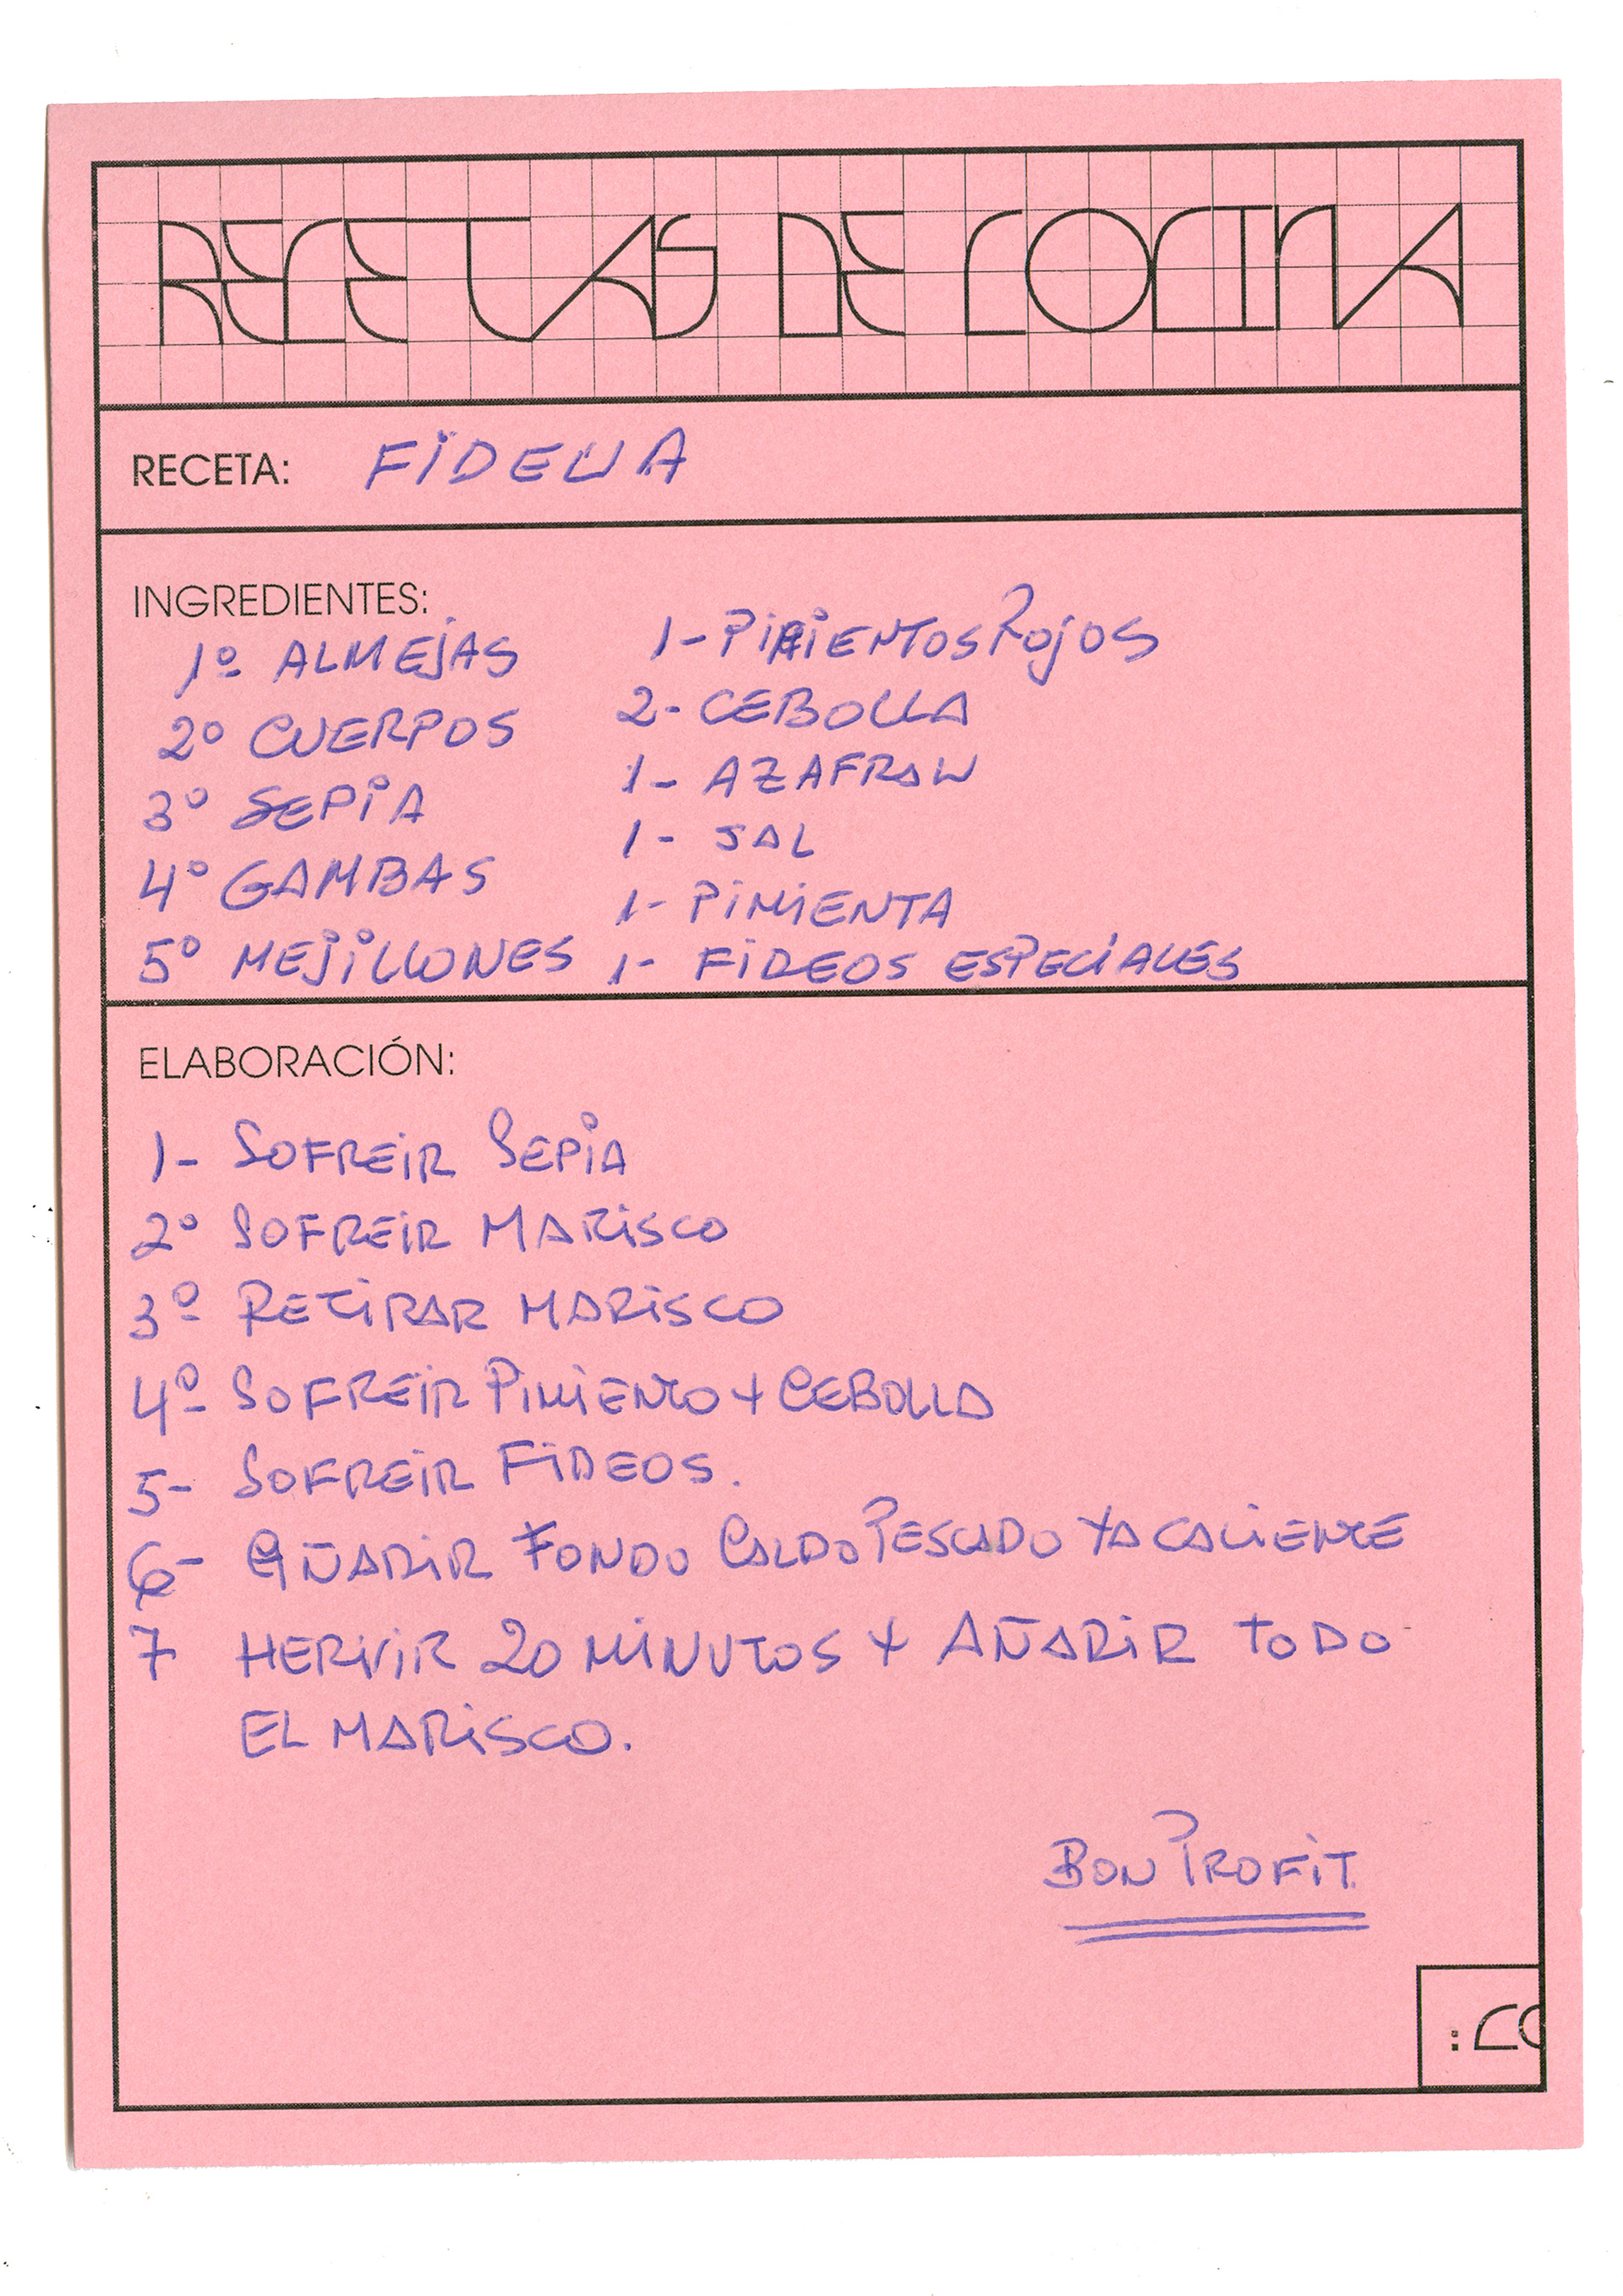 RECETAS DE COCINA
RECETA: FIDEUA
INGREDIENTES:
1º ALMEJAS
2º CUERPOS
3º SEPIA
4º GAMBAS
5º MEJILLONES
1- PIMIENTOS ROJOS
2- CEBOLLA
1- AZAFRAN
1- SAL
1- PIMIENTA
1- FIDEOS ESPECIALES
ELABORACIÓN:
1- SOFREIR SEPIA
2º SOFREIR MARISCO
3º RETIRAR MARISCO
4º SOFREIR PIMIENTO + CEBOLLA
5- SOFREIR FIDEOS.
6- AÑADIR FONDO CALDO PESCADO YA CALIENTE
7 HERVIR 20 MINUTOS + AÑADIR TODO
EL MARISCO.
BON PROFIT
:CO